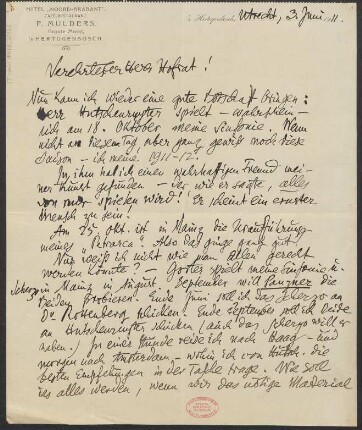 HOTEL „NOORD-BRABANT"
CAFÉ-RESTAURANT
P. MULDERS,
Groote Markt,
's-HERTOGENBOSCH
's Hertogenbosch, Utrecht, 3. Juni 1911.
Verehrtester Herr Hofrat!
Nun kann ich wieder eine gute Botschaft bringen:
Herr Hutschenruyter spielt – wahrschein-
lich am 18. Oktober meine Sinfonie. Wenn
nicht an diesem Tag aber ganz gewiß noch diese
Saison – ich meine 1911–12!
In ihm hab ich einen wahrhaftigen Freund mei-
ner Kunst gefunden – der wie er sagte, alles
von mir spielen wird! Er scheint ein ernster
Mensch zu sein!
Am 25. Okt. ist in Mainz die Uraufführung
meines „Petrarca". Also das ginge ganz gut.
Nur weiß ich nicht wie man allen gerecht
werden könnte? – Gorter spielt meine Sinfonie u.
Scherzo in Mainz im August. September will Panzner die
beiden probieren. Ende Juni soll ich das Scherzo an
Dr. Rottenberg schicken. Ende September soll ich beide
an Hutschenruyter schicken (auch das Scherzo will er
haben.) In einer Stunde reise ich nach Haag – und
morgen nach Amsterdam, – wohin ich von Hutsch. die
besten Empfehlungen in der Tasche trage. Wie soll
das alles werden, wenn wir das nötige Material